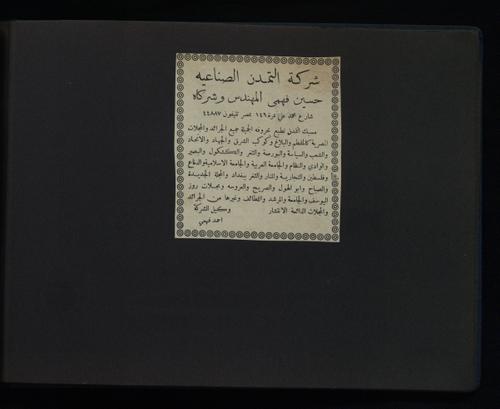 شركة التمدن الصناعيه
حسين فهمى المهندس وشركاه
شارع محمد على نمرة ١٤٦ بمصر تليفون ٤٤٨٨٧
مسبك التمدن تطبع بحروفه الجميلة جميع الجرائد والمجلات
المصرية كالمقطم والبلاغ وكوكب الشرق والجهاد والاتحاد
والشعب والسياسة والبورصة والثغر والكشكول والبصير
والوادى والنظام والجامعة العربية والجامعة الاسلامية والدفاع
وفلسطين والتجارية والمنار والثغر ببغداد والمجلة الجديدة
والصباح وابو الهول والصريح والعروسه ومجلات روز
اليوسف والجامعة والمرشد واللطائف وغيرها من الجرائد
والمجلات الدائمة الانتشار وكيل الشركة
احمد فهمى